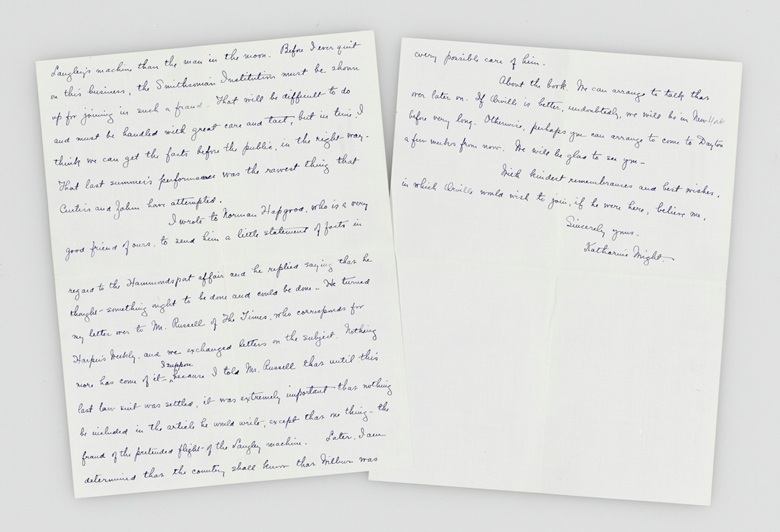 Langley's machine than the man in the moon. Before I ever quit
on this business, the Smithsonian Institution must be shown
up for joining in such a fraud. That will be difficult to do
and must be handled with great care and tact, but in time I
think we can get the facts before the public, in the right way.
That last summer's performance was the rawest thing that
Curtiss and Zahm have attempted.
I wrote to Norman Hapgood, who is a very
good friend of ours, to send him a little statement of facts in
regard to the Hammondsport affair and he replied saying that he
thought something ought to be done and could be done. He turned
my letter over to Mr. Russell of The Times, who corresponds for
Harper's Weekly, and we exchanged letters on the subject. Nothing
more has come of it I suppose because I told Mr. Russell that until this
last law suit was settled, it was extremely important that nothing
be included in the article he would write, except that one thing - the
fraud of the pretended flight of the Langley machine. Later, I am
determined that the country shall know that Wilbur was
every possible care of him.
About the book. We can arrange to talk that
over later on. If Orville is better, undoubtedly, we will be in New York
before very long. Otherwise, perhaps you can arrange to come to Dayton
a few weeks from now. We will be glad to see you -
With kindest remembrances and best wishes,
in which Orville would wish to join, if he were here, believe me,
Sincerely yours,
Katharine Wright.